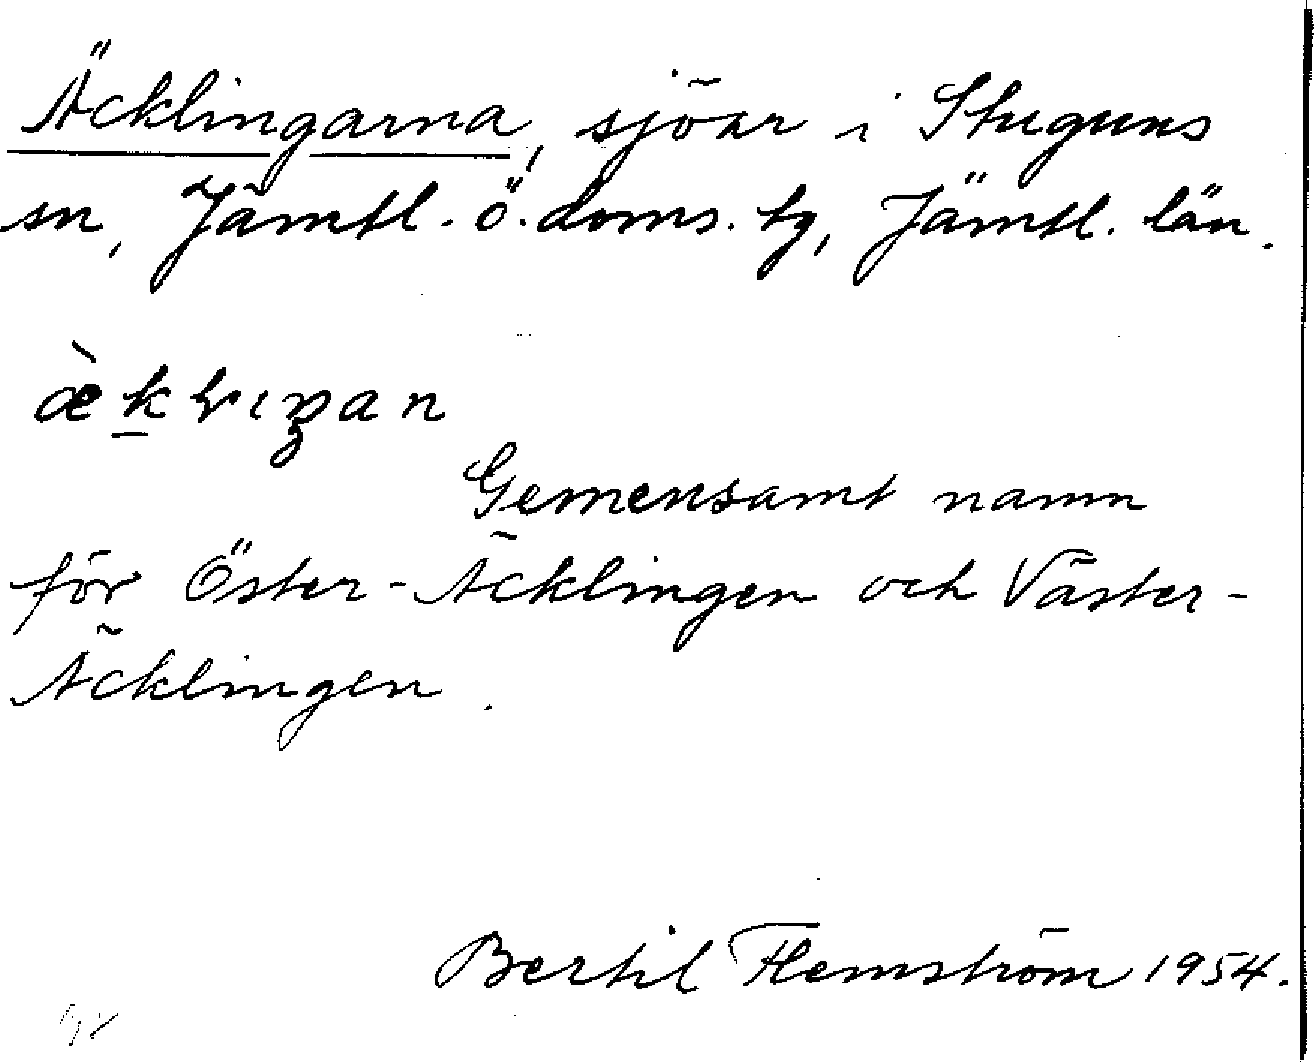 Äcklingarna, sjöar i Stuguns
sn, Jämtl. ö. doms. tg, Jämtl. län.
Gemensamt namn
för Öster-Äcklingen och Väster-
Äcklingen.
Bertil Flemström 1954.